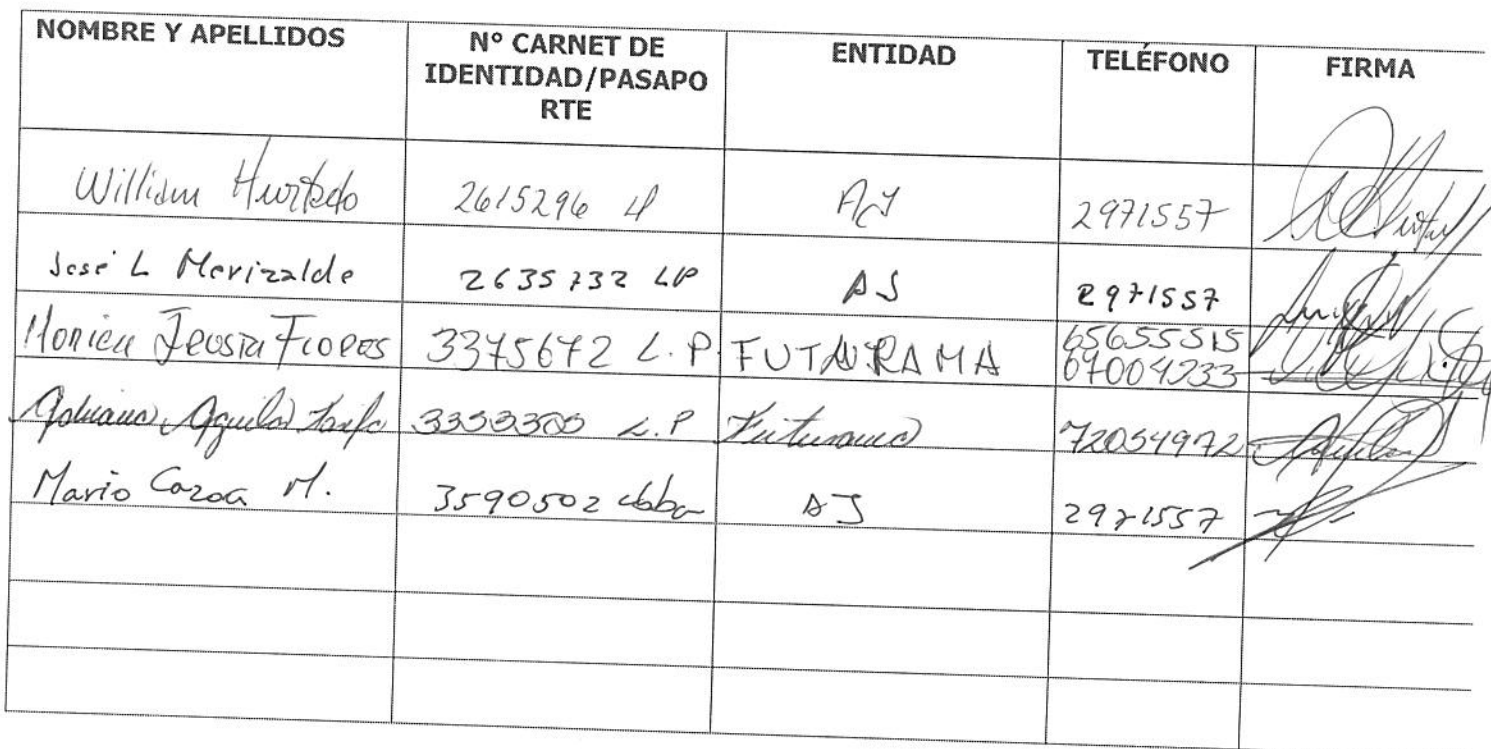 NOMBRE Y APELLIDOS
N° CARNET DE
IDENTIDAD/PASAPO
RTE
ENTIDAD
TELÉFONO
FIRMA
William Hurtado 2615296 LP AJ 2971557
José L Merizalde 2635732 LP AJ 2971557
Monica Flores 3375672 L.P. FUTURAMA 65655515
67004233
Aguilar L.P Futurama 72054972
Mario M. 3590502 cbba AJ 2971557